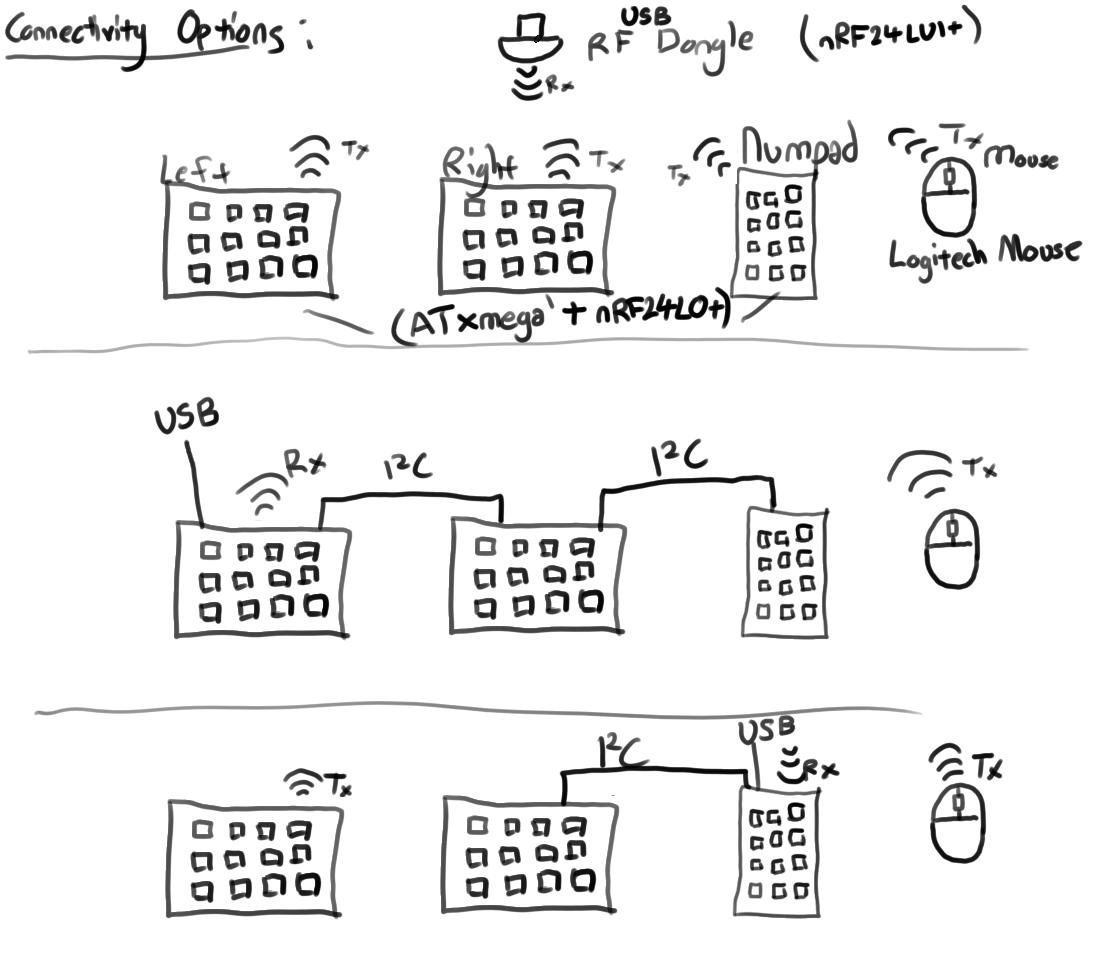 Connectivity Options:
USB
RF Dongle (nRF24LU1+)
Rx
Left
Tx
Right
Tx
Tx
Numpad
Tx
Mouse
Logitech Mouse
(ATxmega + nRF24L0+)
USB
Rx
I²C
I²C
Tx
Tx
I²C
USB
Rx
Tx